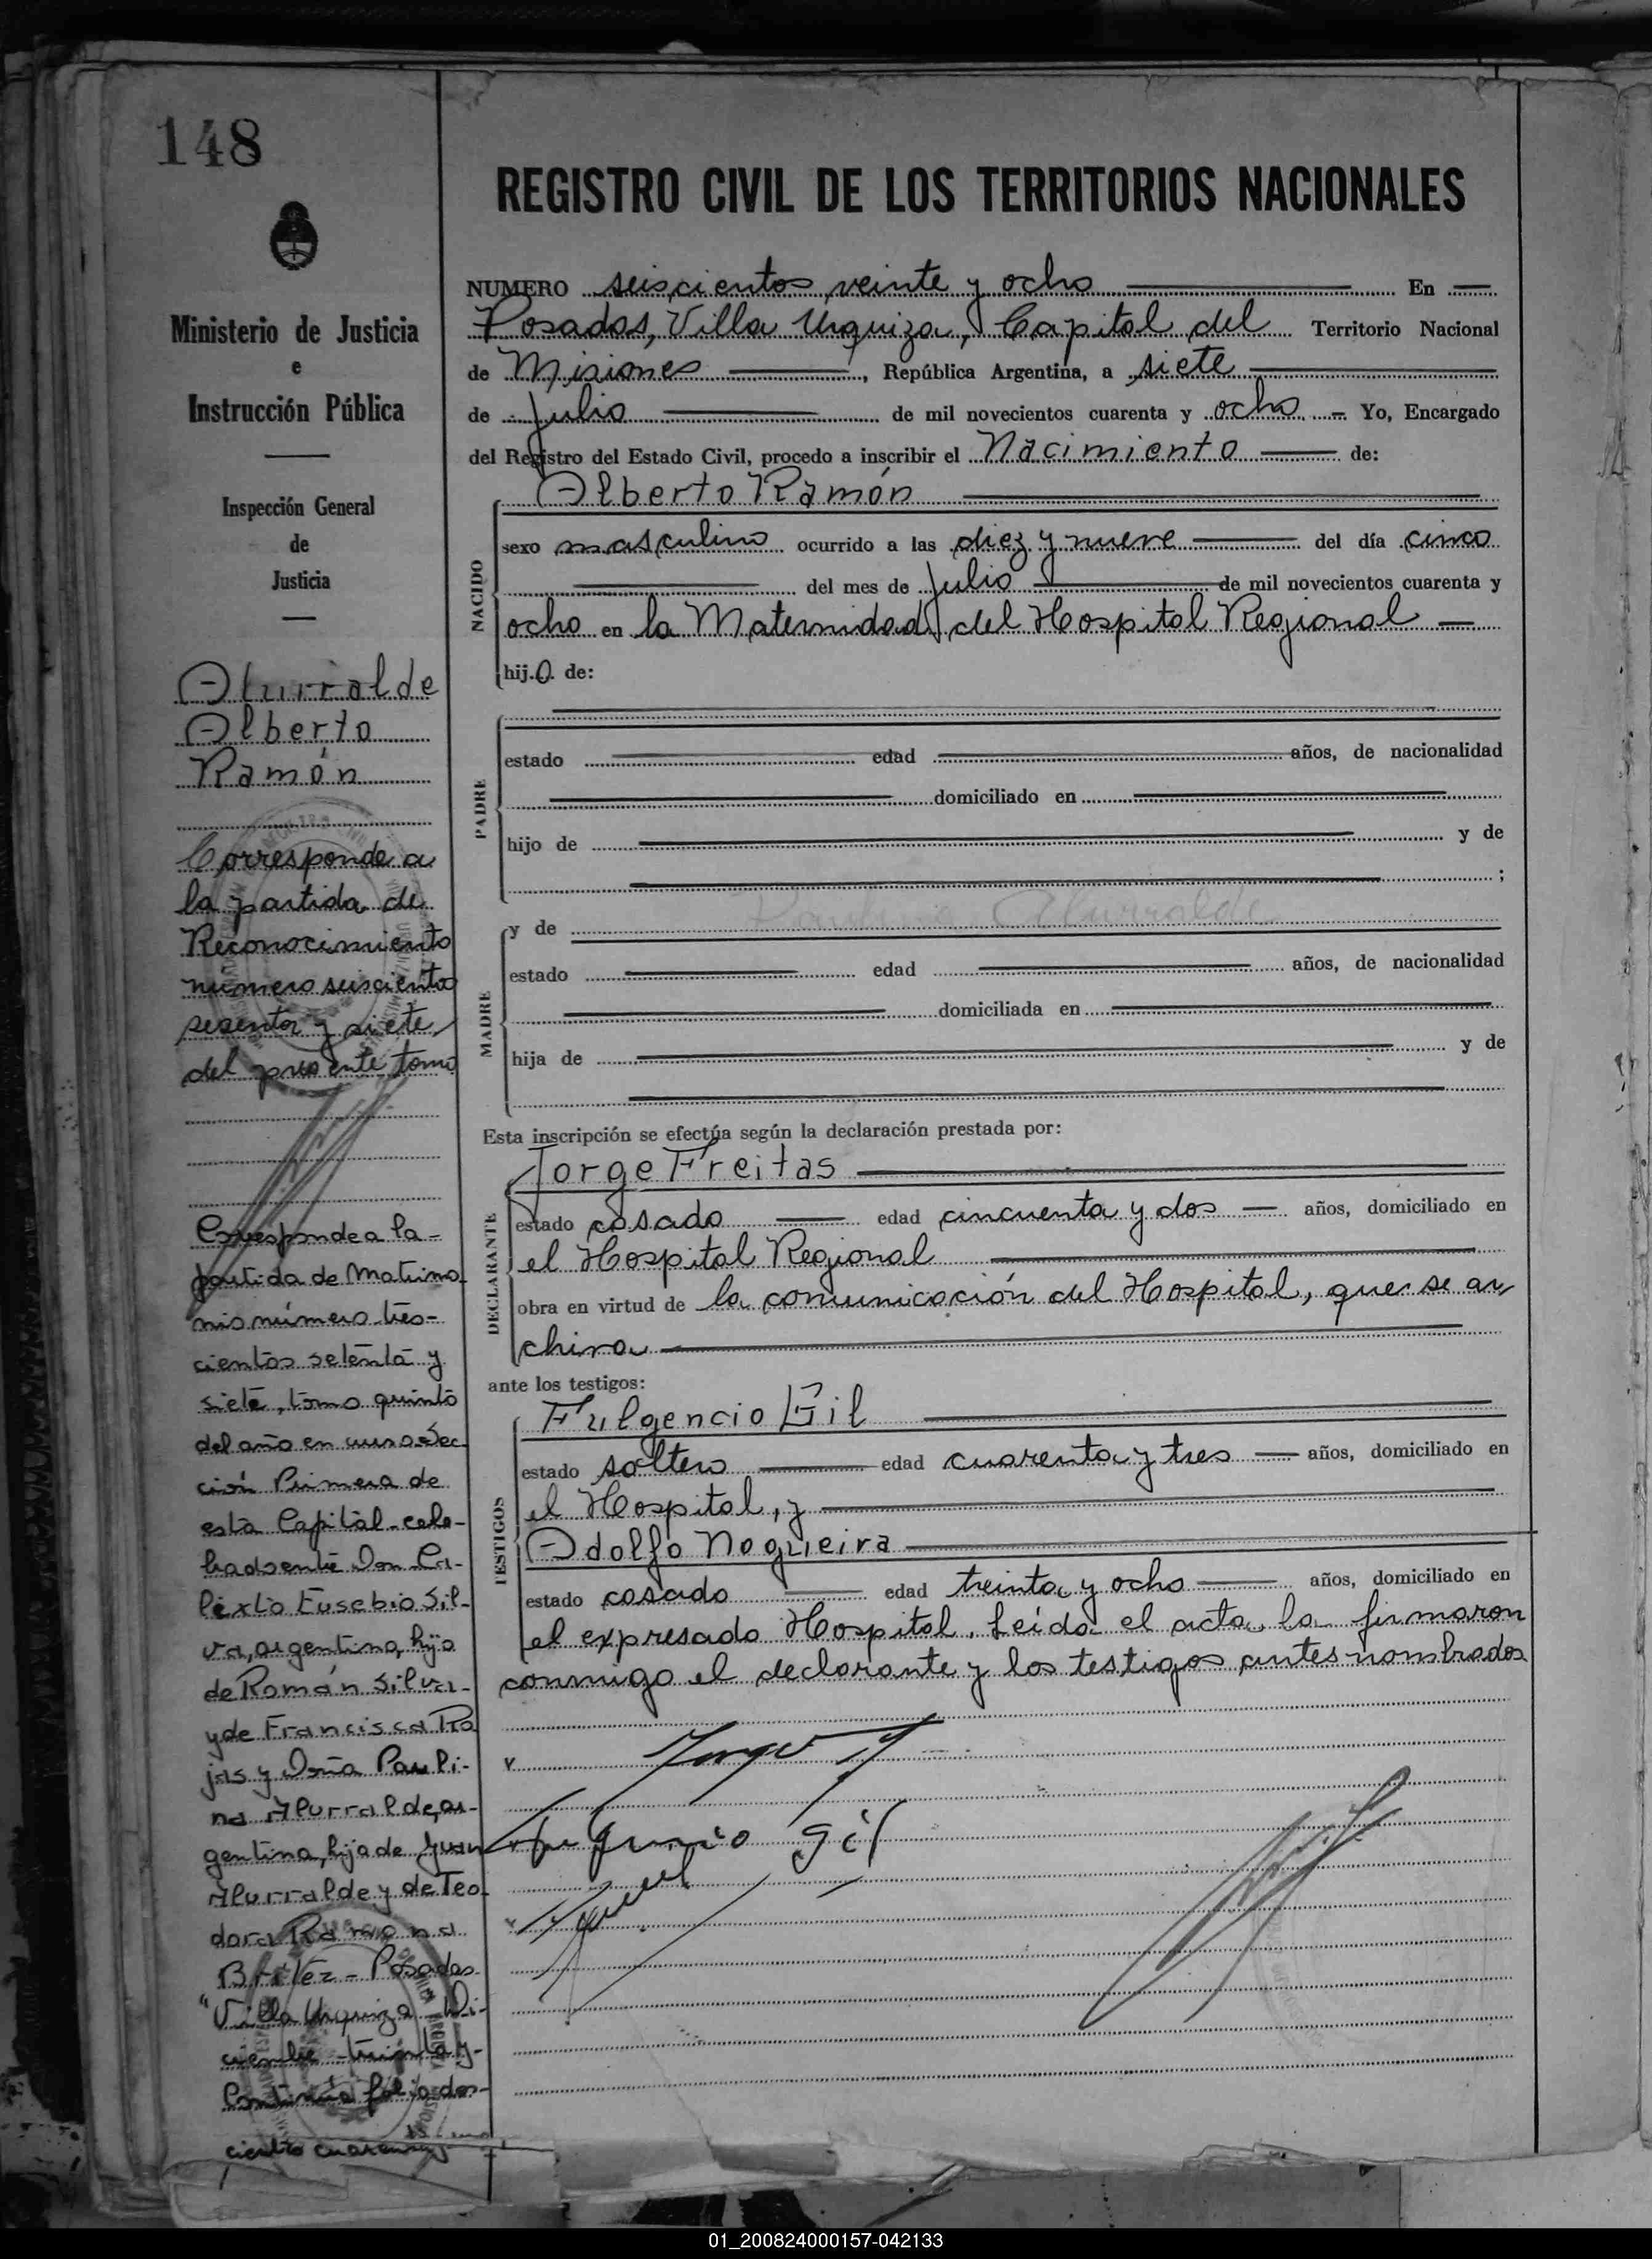 148
Ministerio de Justicia
e
Instrucción Pública
Inspección General
de
Justicia
Alurralde
Alberto
Ramón
Corresponde a
la partida de
Reconocimiento
número seiscientos
sesenta y siete
del presente tomo
Corresponde a la-
partida de Matrimo
nio número tres-
cientos setenta y
siete, tomo quinto
del año en curso-Sec
ción Primera de
esta Capital-cele-
brado entre Don Ca-
lixto Eusebio Sil-
va, argentino, hijo
de Román Silva-
y de Francisca Ro
jas y Doña Pauli-
na Alurralde, ar-
gentina, hija de Juan
Alurralde y de Teo
dora Ramona
Britez - Posadas
"Villa Urquiza Di-
ciembre treinta y-
Continúa folio dos-
cientos cuarenta y
REGISTRO CIVIL DE LOS TERRITORIOS NACIONALES
NUMERO seiscientos veinte y ocho En
Posadas, Villa Urquiza, Capital del Territorio Nacional
de Misiones, República Argentina, a siete
de Julio de mil novecientos cuarenta y ocho Yo, Encargado
del Registro del Estado Civil, procedo a inscribir el Nacimiento de:
Alberto Ramón
NACIDO
sexo masculino ocurrido a las diez y nueve del día cinco
del mes de Julio de mil novecientos cuarenta y
ocho en la Maternidad del Hospital Regional
hijo de:
PADRE
estado edad años, de nacionalidad
domiciliado en
hijo de y de
;
MADRE
y de Paulina Alurralde
estado edad años, de nacionalidad
domiciliada en
hija de y de
Esta inscripción se efectúa según la declaración prestada por:
Jorge Freitas
DECLARANTE
estado casado edad cincuenta y dos años, domiciliado en
el Hospital Regional
obra en virtud de la comunicación del Hospital, que se ar
chiva
ante los testigos:
TESTIGOS
Fulgencio Gil
estado soltero edad cuarenta y tres años, domiciliado en
el Hospital, y
Adolfo Nogueira
estado casado edad treinta y ocho años, domiciliado en
el expresado Hospital. Leída el acta, la firmaron
conmigo el declarante y los testigos antes nombrados
Jorge F
Fulgencio Gil
01_200824000157-042133